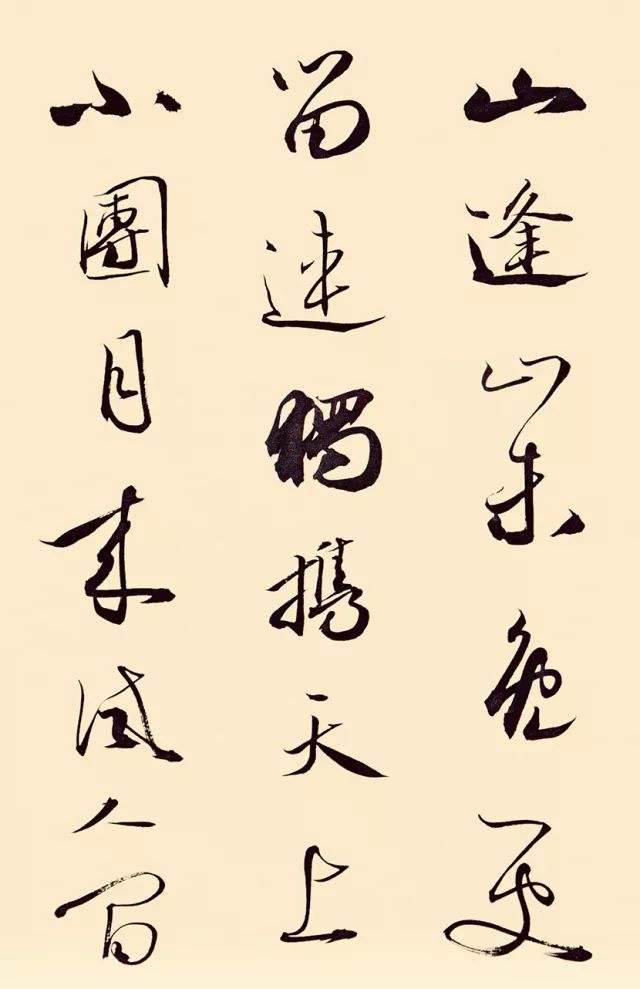 山逢山未免更
留連獨攜天上
小團月來試人間